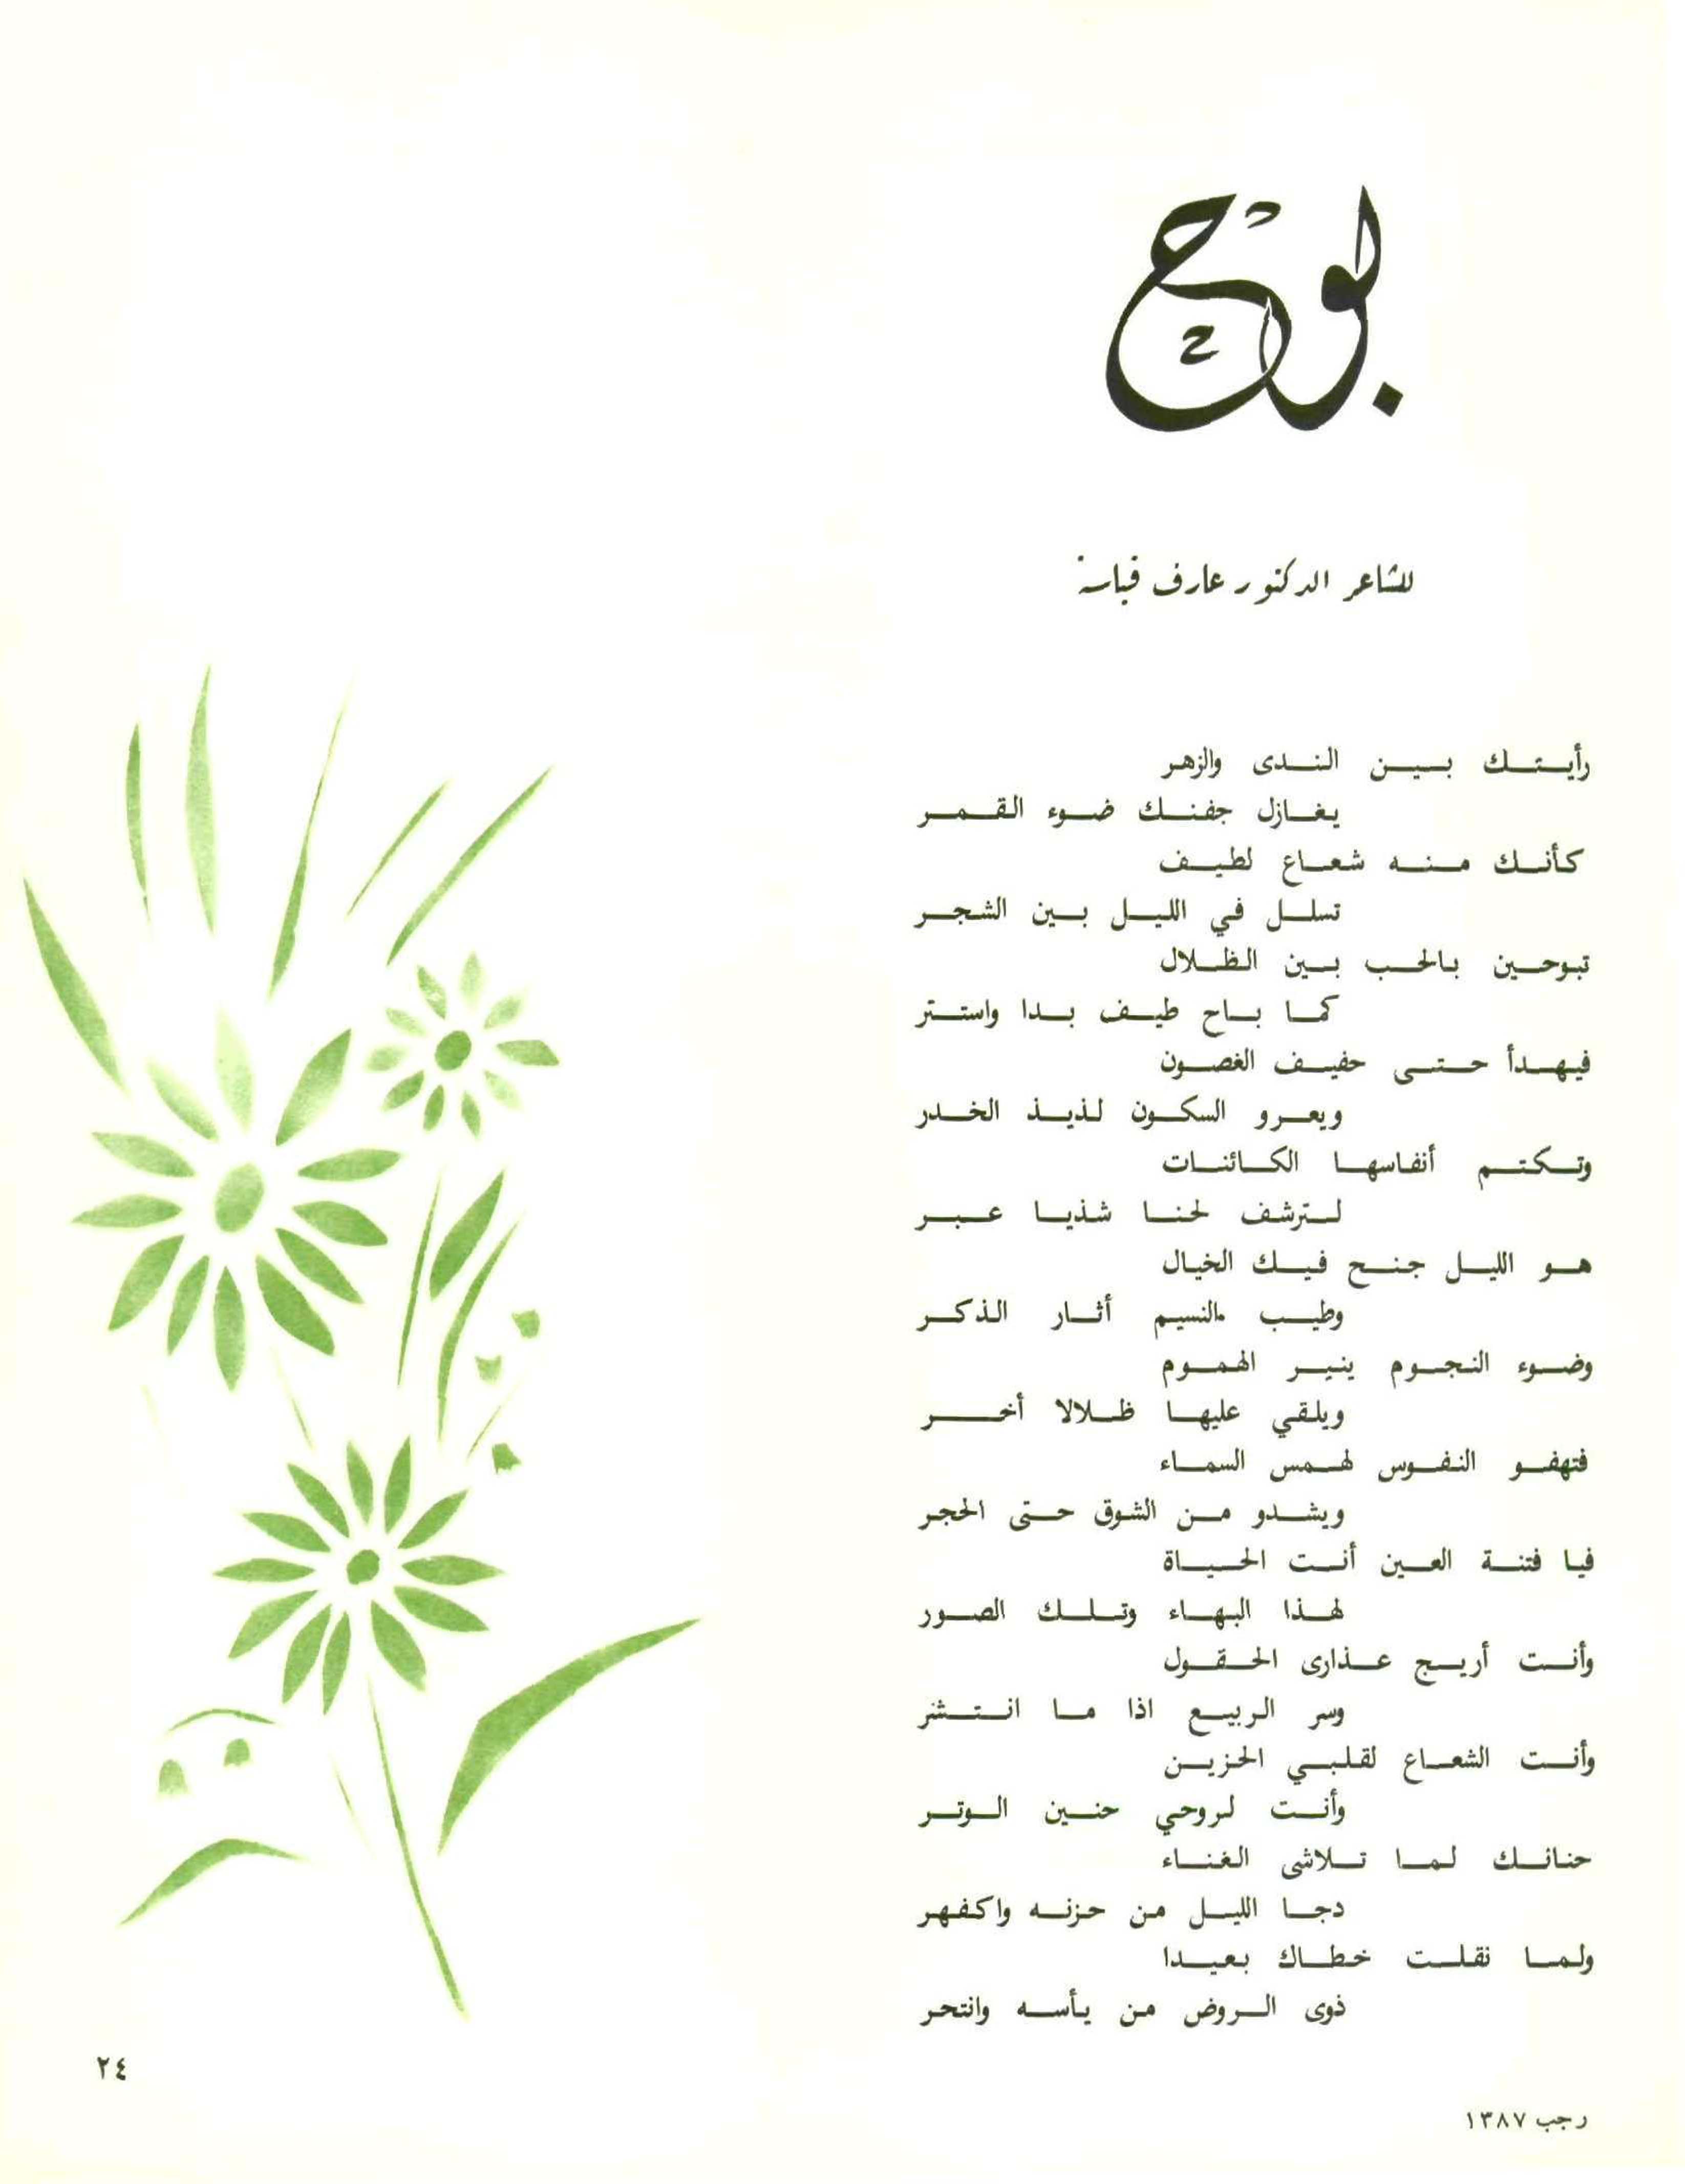 بوح
للشاعر الدكتور عارف قياسة
رأيتك بين الندى والزهر
يغازل جفنك ضوء القمر
كأنك منه شعاع لطيف
تسلل في الليل بين الشجر
تبوحين بالحب بين الظلال
كما باح طيف بدا واستتر
فيهدأ حتى حفيف الغصون
ويعرو السكون لذيذ الخدر
وتكتم أنفاسها الكائنات
لترشف لحنا شذيا عبر
هو الليل جنح فيك الخيال
وطيب النسيم أثار الذكر
وضوء النجوم ينير الهموم
ويلقي عليها ظلالا أخر
فتهفو النفوس لهمس السماء
ويشدو من الشوق حتى الحجر
فيا فتنة العين أنت الحياة
لهذا البهاء وتلك الصور
وأنت أريج عذارى الحقول
وسر الربيع اذا ما انتشر
وأنت الشعاع لقلبي الحزين
وأنت لروحي حنين الوتر
حنانك لما تلاشى الغناء
دجا الليل من حزنه واكفهر
ولما نقلت خطاك بعيدا
ذوى الروض من يأسه وانتحر
٢٤
رجب ١٣٨٧